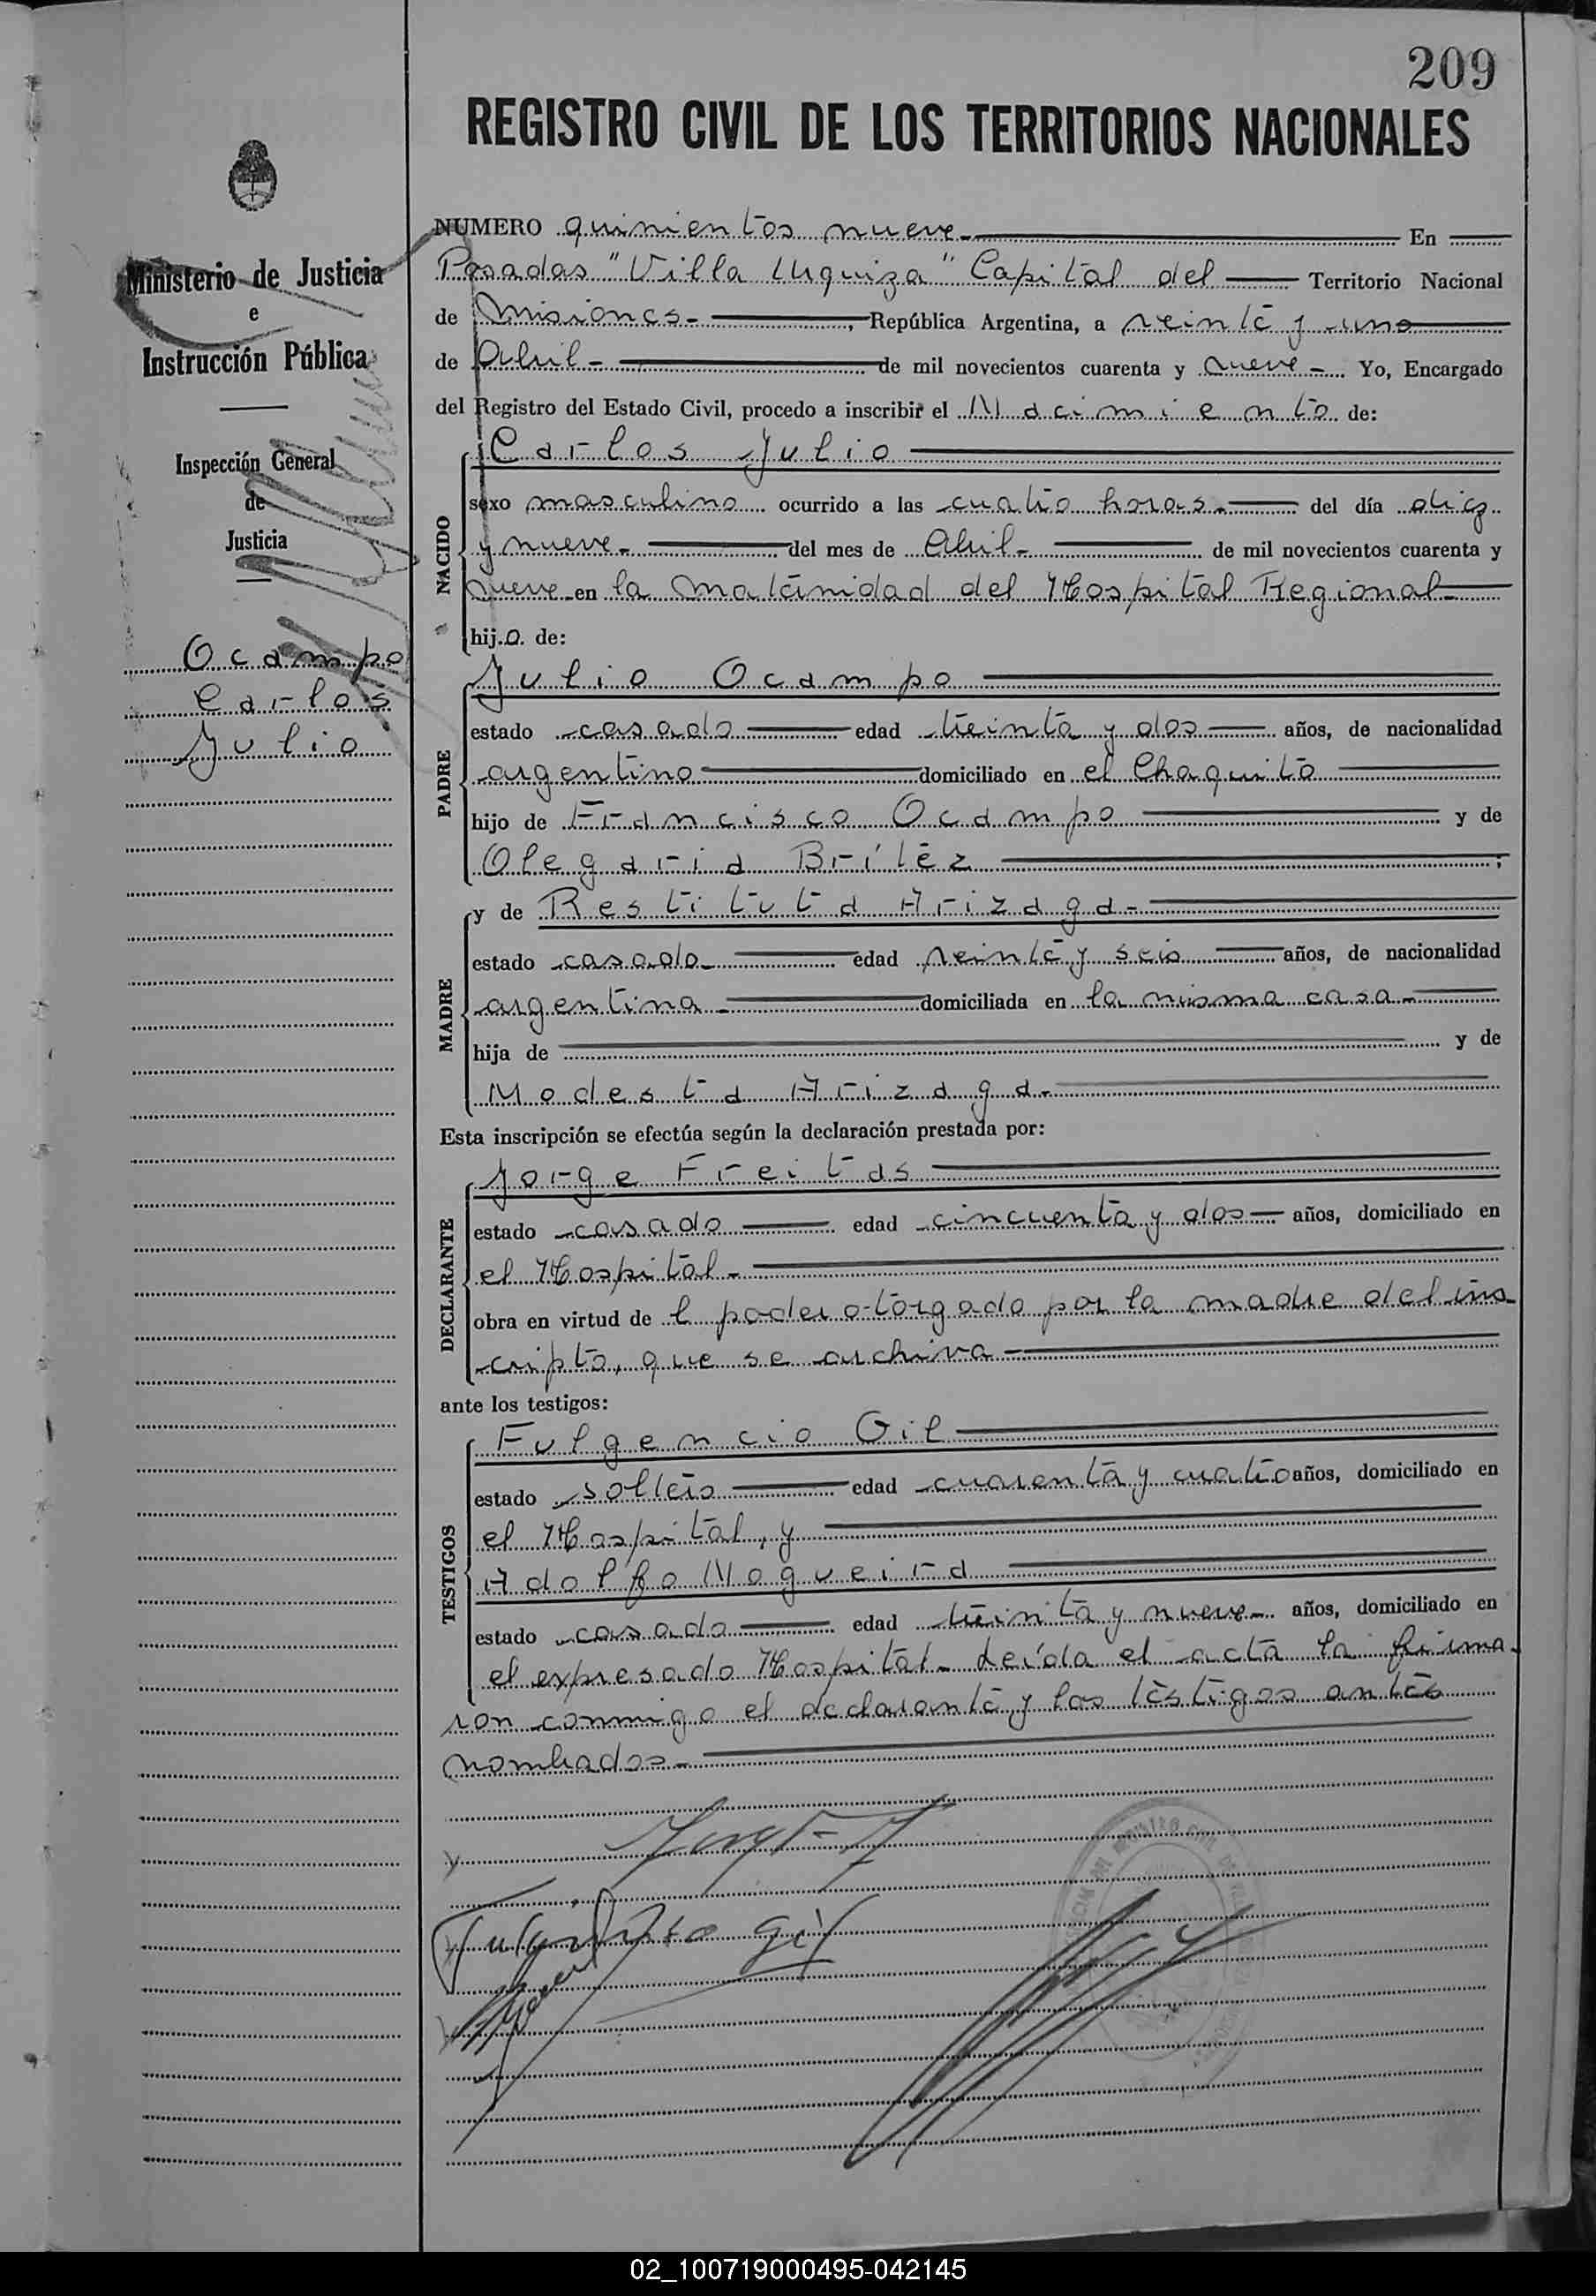 209
REGISTRO CIVIL DE LOS TERRITORIOS NACIONALES
Ministerio de Justicia
e
Instrucción Pública
Inspección General
de
Justicia
Ocampo
Carlos
Julio
NUMERO quinientos nueve - En
Posadas "Villa Urquiza" Capital del Territorio Nacional
de Misiones - , República Argentina, a veinte y uno
de Abril - de mil novecientos cuarenta y nueve - Yo, Encargado
del Registro del Estado Civil, procedo a inscribir el Nacimiento de:
NACIDO
Carlos Julio
sexo masculino ocurrido a las cuatro horas - del día diez
y nueve - del mes de Abril - de mil novecientos cuarenta y
nueve en la Maternidad del Hospital Regional -
hijo de:
PADRE
Julio Ocampo
estado casado edad treinta y dos años, de nacionalidad
argentino domiciliado en el Chaquito
hijo de Francisco Ocampo y de
Olegaria Brítez ;
MADRE
y de Restituta Arizaga -
estado casada - edad veinte y seis años, de nacionalidad
argentina - domiciliada en la misma casa -
hija de y de
Modesta Arizaga -
Esta inscripción se efectúa según la declaración prestada por:
DECLARANTE
Jorge Freitas
estado casado edad cincuenta y dos años, domiciliado en
el Hospital -
obra en virtud de l poder otorgado por la madre del ins
cripto, que se archiva -
ante los testigos:
TESTIGOS
Fulgencio Gil
estado soltero edad cuarenta y cuatro años, domiciliado en
el Hospital, y
Adolfo Nogueira
estado casado edad treinta y nueve - años, domiciliado en
el expresado Hospital - Leída el acta la firma
ron conmigo el declarante y los testigos antes
nombrados -
02_100719000495-042145